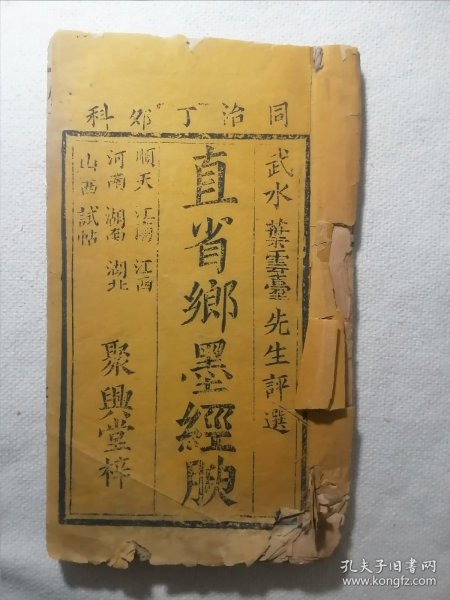 同治丁卯科
武水葉雲臺先生評選
直省鄉墨經腴
順天 江西
河南 湖南 湖北
山西 試帖
聚興堂梓
孔夫子旧书网
www.kongfz.com